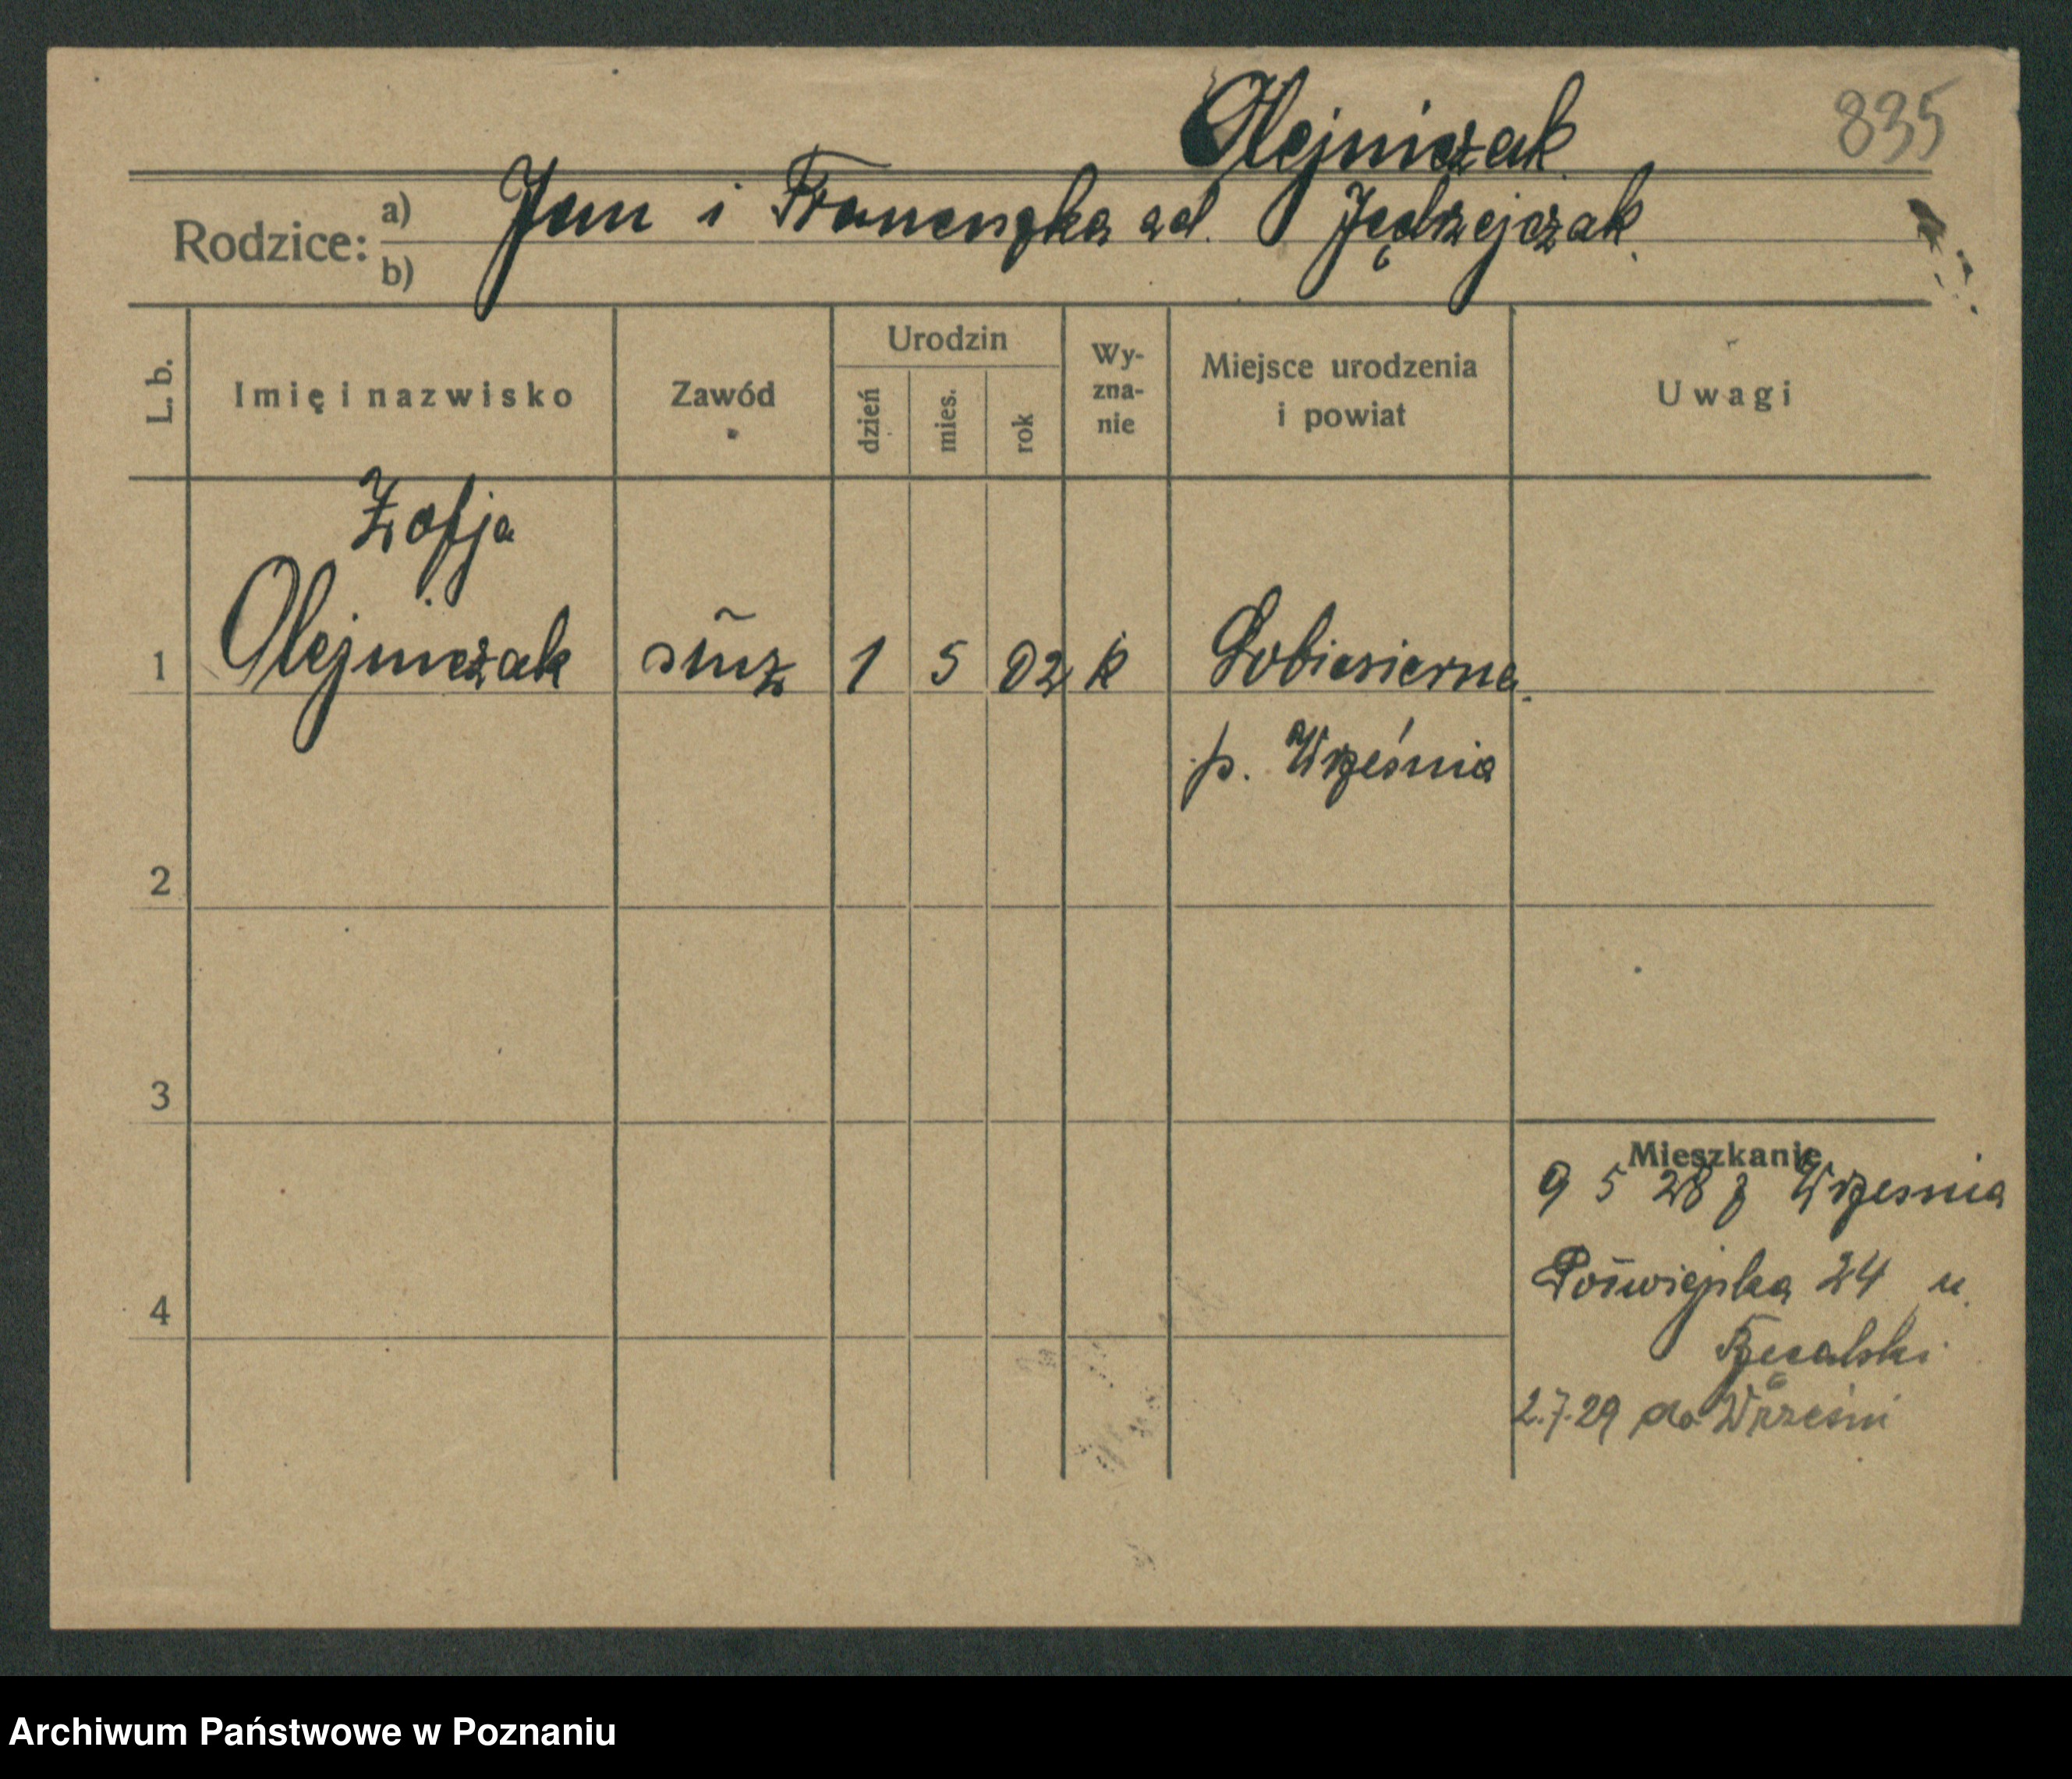 Olejniczak
835
Rodzice: a) b)
Jan i Franciszka zd. Jędrzejczak.
L. b. Imię i nazwisko Zawód Urodzin dzień mies. rok Wy-zna-nie Miejsce urodzenia i powiat Uwagi
Zofja
1 Olejniczak służ 1 5 02 k Sobiesiernie
p. Września
2
3
Mieszkanie
9 5 28 z Wrzesnia
24 u.
4
2.7.29 do Wrześni
Archiwum Państwowe w Poznaniu